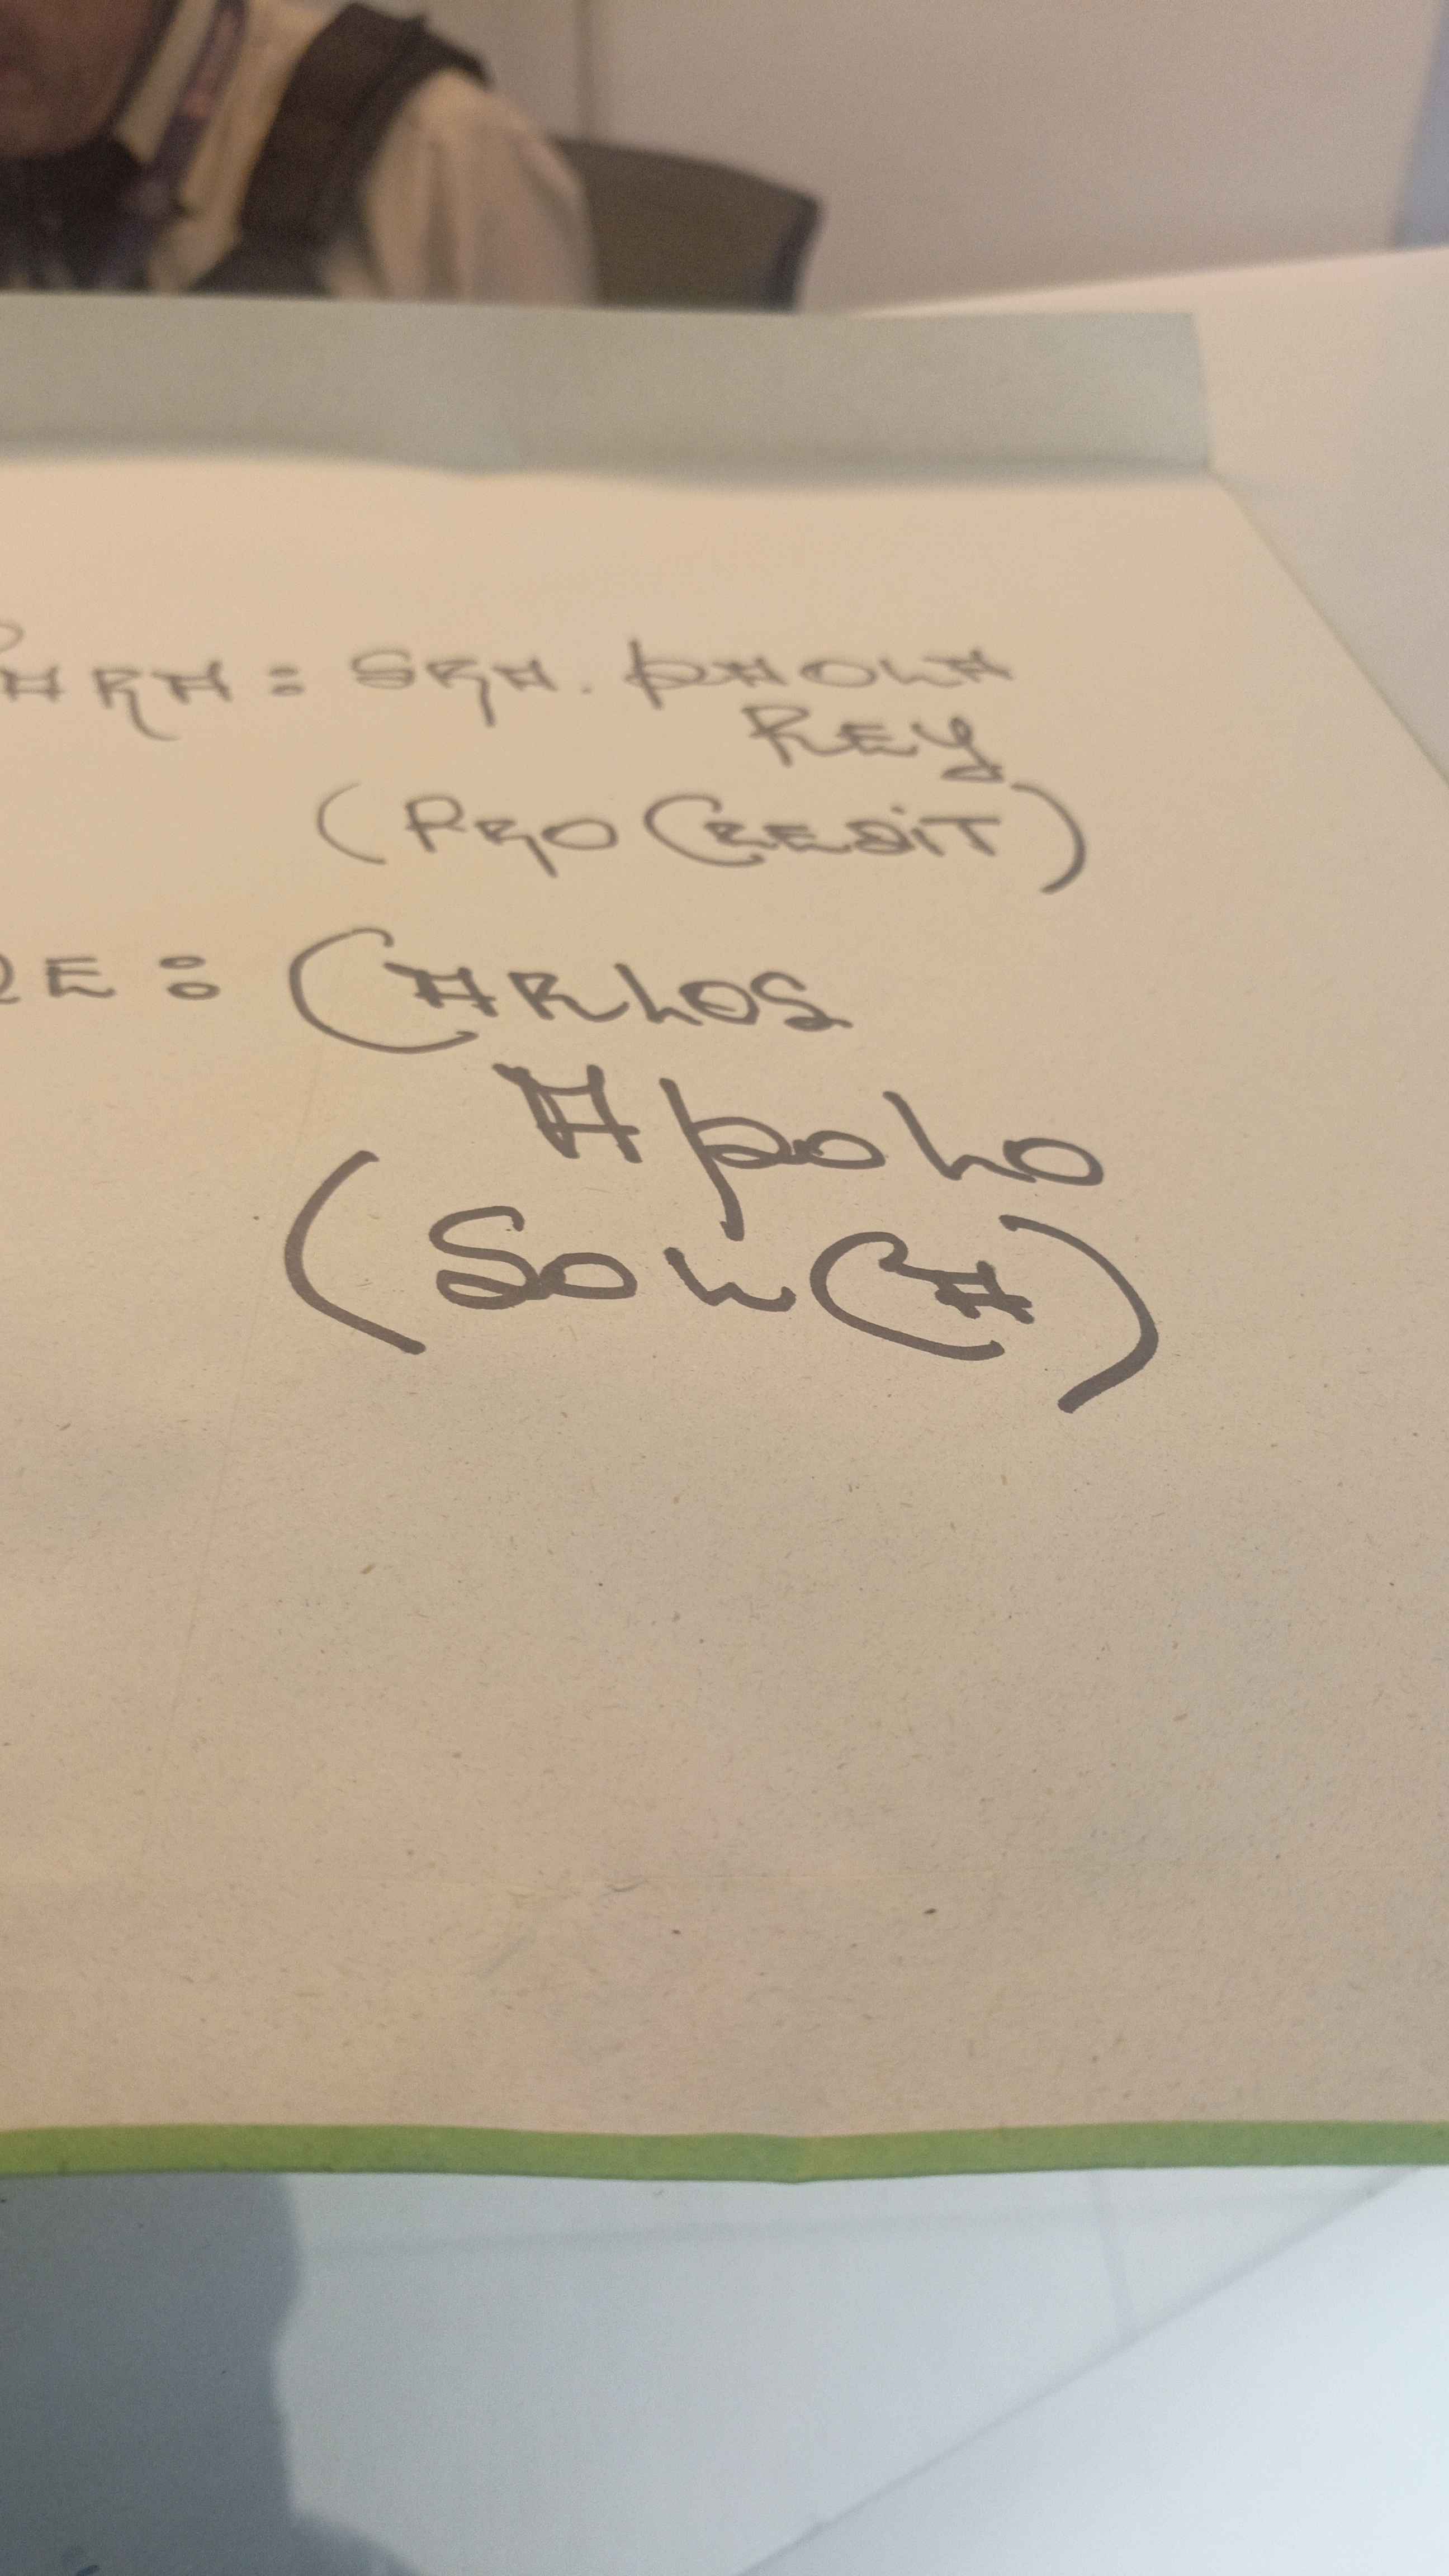 PARA: SRA. PAOLA
REY
(PRO CREDIT)
DE: CARLOS
APOLO
(SOLCA)